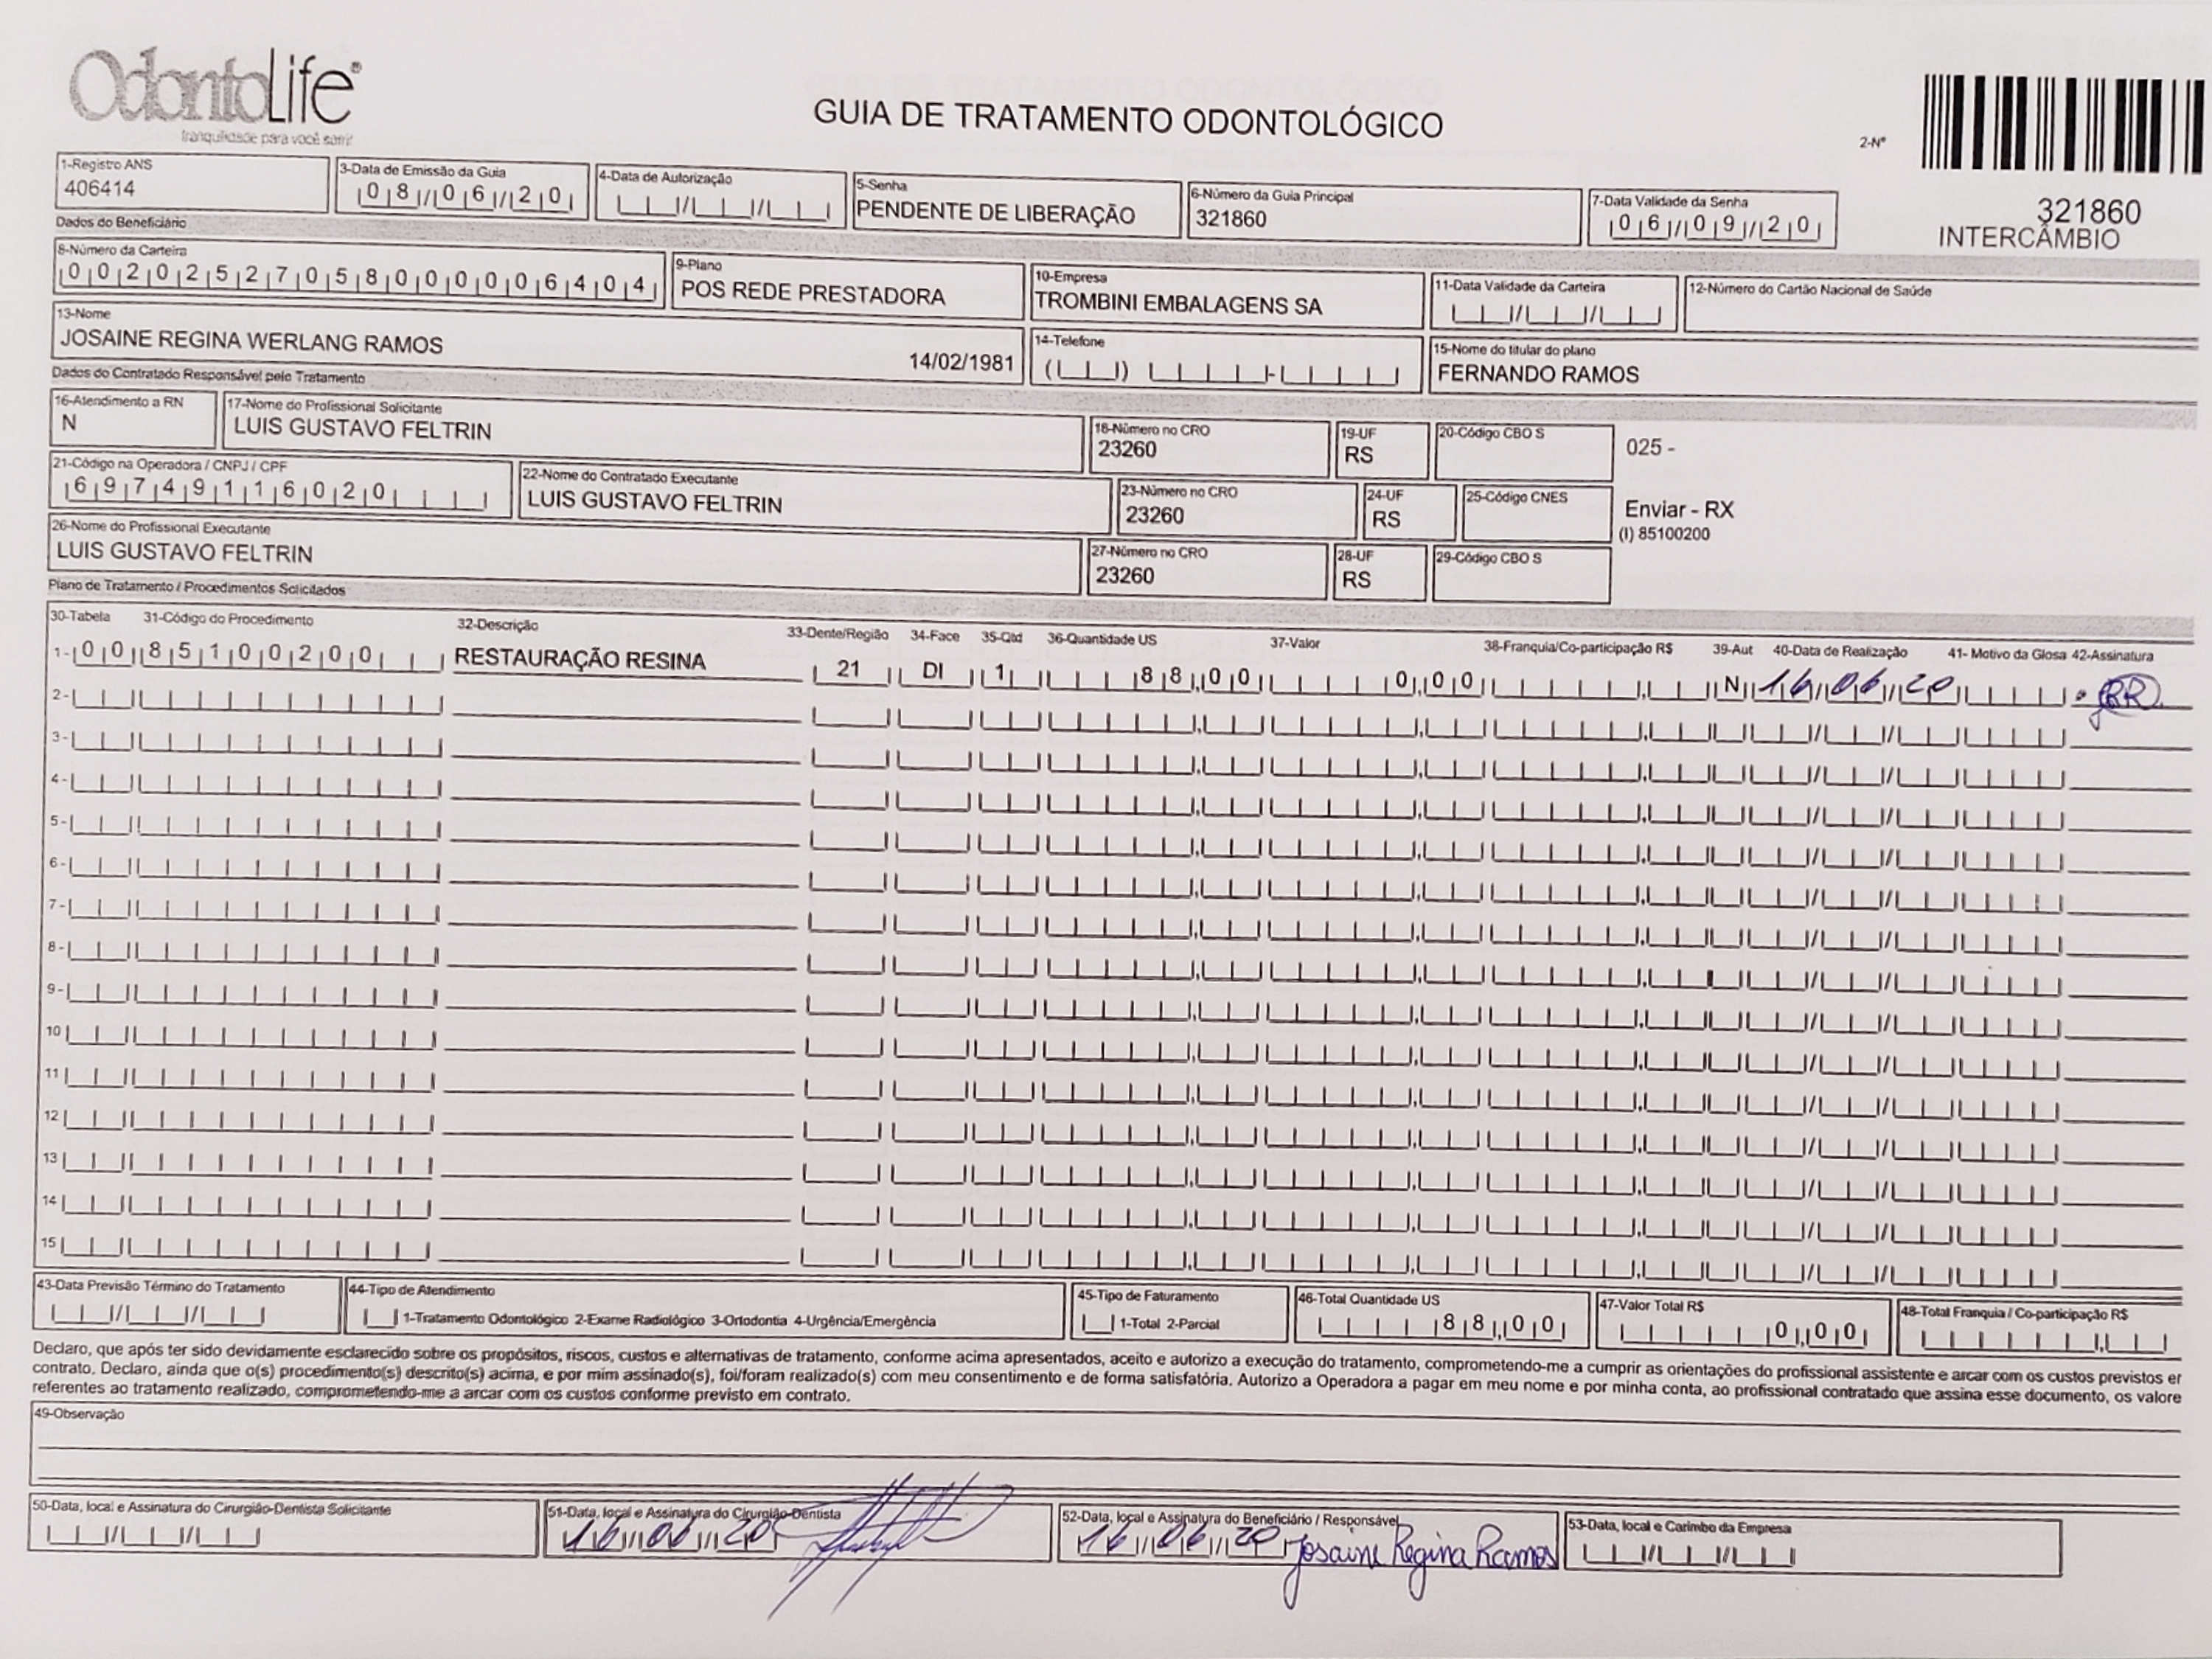 OdontoLife®
tranquilidade para você sorrir
GUIA DE TRATAMENTO ODONTOLÓGICO
2-Nº
321860
INTERCÂMBIO
1-Registro ANS
406414
3-Data de Emissão da Guia
08/06/20
4-Data de Autorização
5-Senha
PENDENTE DE LIBERAÇÃO
6-Número da Guia Principal
321860
7-Data Validade da Senha
06/09/20
Dados do Beneficiário
8-Número da Carteira
00202527058000006404
9-Plano
POS REDE PRESTADORA
10-Empresa
TROMBINI EMBALAGENS SA
11-Data Validade da Carteira
12-Número do Cartão Nacional de Saúde
13-Nome
JOSAINE REGINA WERLANG RAMOS 14/02/1981
14-Telefone
15-Nome do titular do plano
FERNANDO RAMOS
Dados do Contratado Responsável pelo Tratamento
16-Atendimento a RN
N
17-Nome do Profissional Solicitante
LUIS GUSTAVO FELTRIN
18-Número no CRO
23260
19-UF
RS
20-Código CBO S
025 -
21-Código na Operadora / CNPJ / CPF
69749116020
22-Nome do Contratado Executante
LUIS GUSTAVO FELTRIN
23-Número no CRO
23260
24-UF
RS
25-Código CNES
Enviar - RX
(I) 85100200
26-Nome do Profissional Executante
LUIS GUSTAVO FELTRIN
27-Número no CRO
23260
28-UF
RS
29-Código CBO S
Plano de Tratamento / Procedimentos Solicitados
30-Tabela 31-Código do Procedimento 32-Descrição 33-Dente/Região 34-Face 35-Qtd 36-Quantidade US 37-Valor 38-Franquia/Co-participação R$ 39-Aut 40-Data de Realização 41- Motivo da Glosa 42-Assinatura
1- 00 85100200 RESTAURAÇÃO RESINA 21 DI 1 88,00 0,00 N 16/06/20
2-
3-
4-
5-
6-
7-
8-
9-
10
11
12
13
14
15
43-Data Previsão Término do Tratamento
44-Tipo de Atendimento
1-Tratamento Odontológico 2-Exame Radiológico 3-Ortodontia 4-Urgência/Emergência
45-Tipo de Faturamento
1-Total 2-Parcial
46-Total Quantidade US
88,00
47-Valor Total R$
0,00
48-Total Franquia / Co-participação R$
Declaro, que após ter sido devidamente esclarecido sobre os propósitos, riscos, custos e alternativas de tratamento, conforme acima apresentados, aceito e autorizo a execução do tratamento, comprometendo-me a cumprir as orientações do profissional assistente e arcar com os custos previstos er
contrato. Declaro, ainda que o(s) procedimento(s) descrito(s) acima, e por mim assinado(s), foi/foram realizado(s) com meu consentimento e de forma satisfatória. Autorizo a Operadora a pagar em meu nome e por minha conta, ao profissional contratado que assina esse documento, os valore
referentes ao tratamento realizado, comprometendo-me a arcar com os custos conforme previsto em contrato.
49-Observação
50-Data, local e Assinatura do Cirurgião-Dentista Solicitante
51-Data, local e Assinatura do Cirurgião-Dentista
16/06/20
52-Data, local e Assinatura do Beneficiário / Responsável
16/06/20 Josaine Regina Ramos
53-Data, local e Carimbo da Empresa